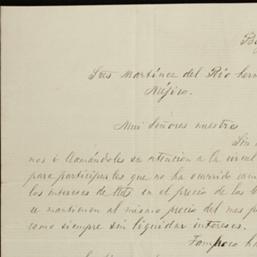 Sres Martínez del Río Herm
Méjico.
Mui Señores nuestros
Sin
nos i llamándoles su atencion a la circul
para participarles que no ha ocurrido cam
los intereses de Uds en el precio de las
se mantienen al mismo precio del mes p
como siempre sin liquidar intereses.
Tampoco ha